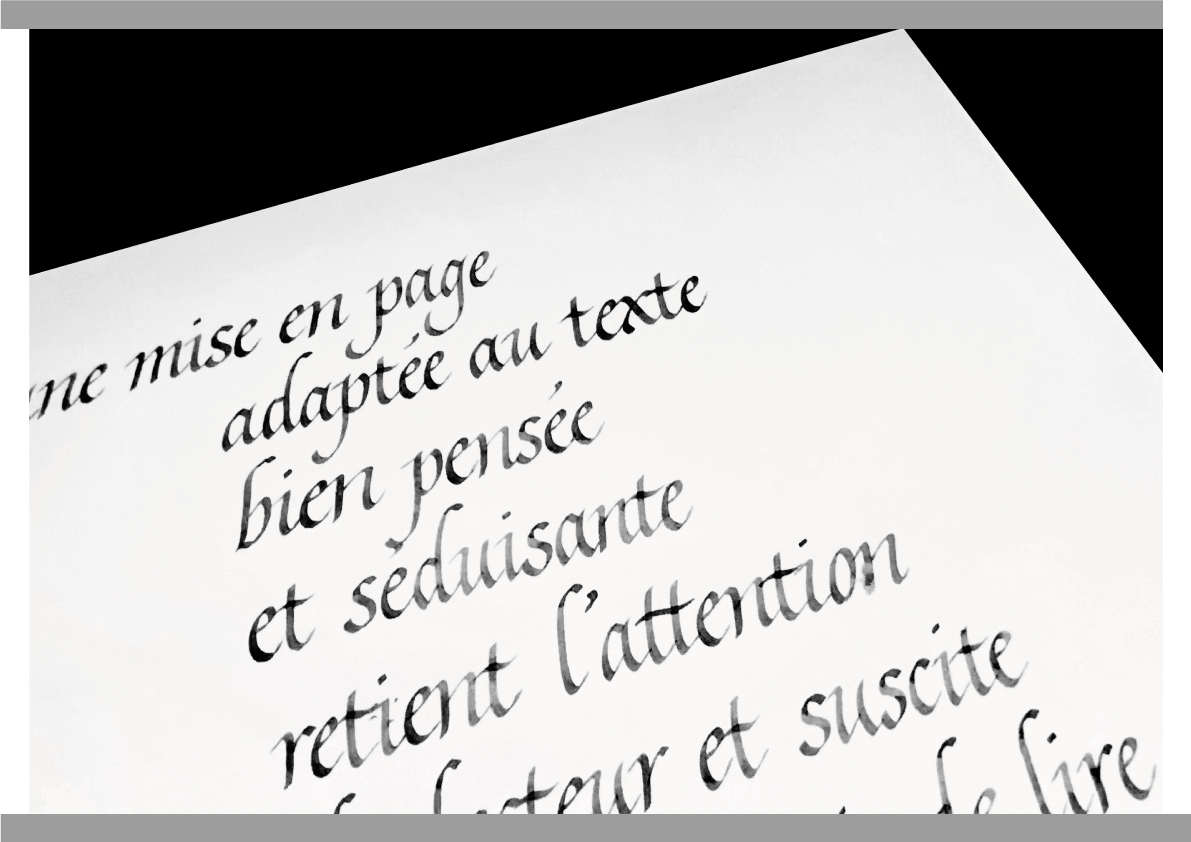 mise en page
adaptée au texte
bien pensée
et séduisante
retient l'attention
lecteur et suscite
de lire